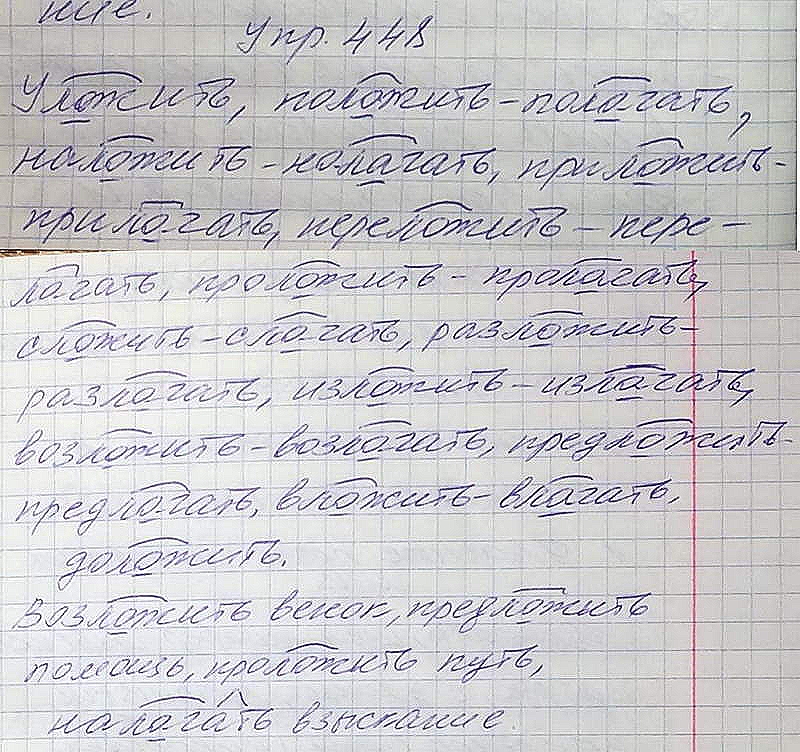 ние.
Упр. 448
Уложить, положить-полагать,
наложить-налагать, приложить-
прилагать, переложить-пере-
лагать, проложить-пролагать,
сложить-слагать, разложить-
разлагать, изложить-излагать,
возложить-возлагать, предложить-
предлагать, вложить-влагать,
доложить.
Возложить венок, предложить
помощь, проложить путь,
налагать взыскание.